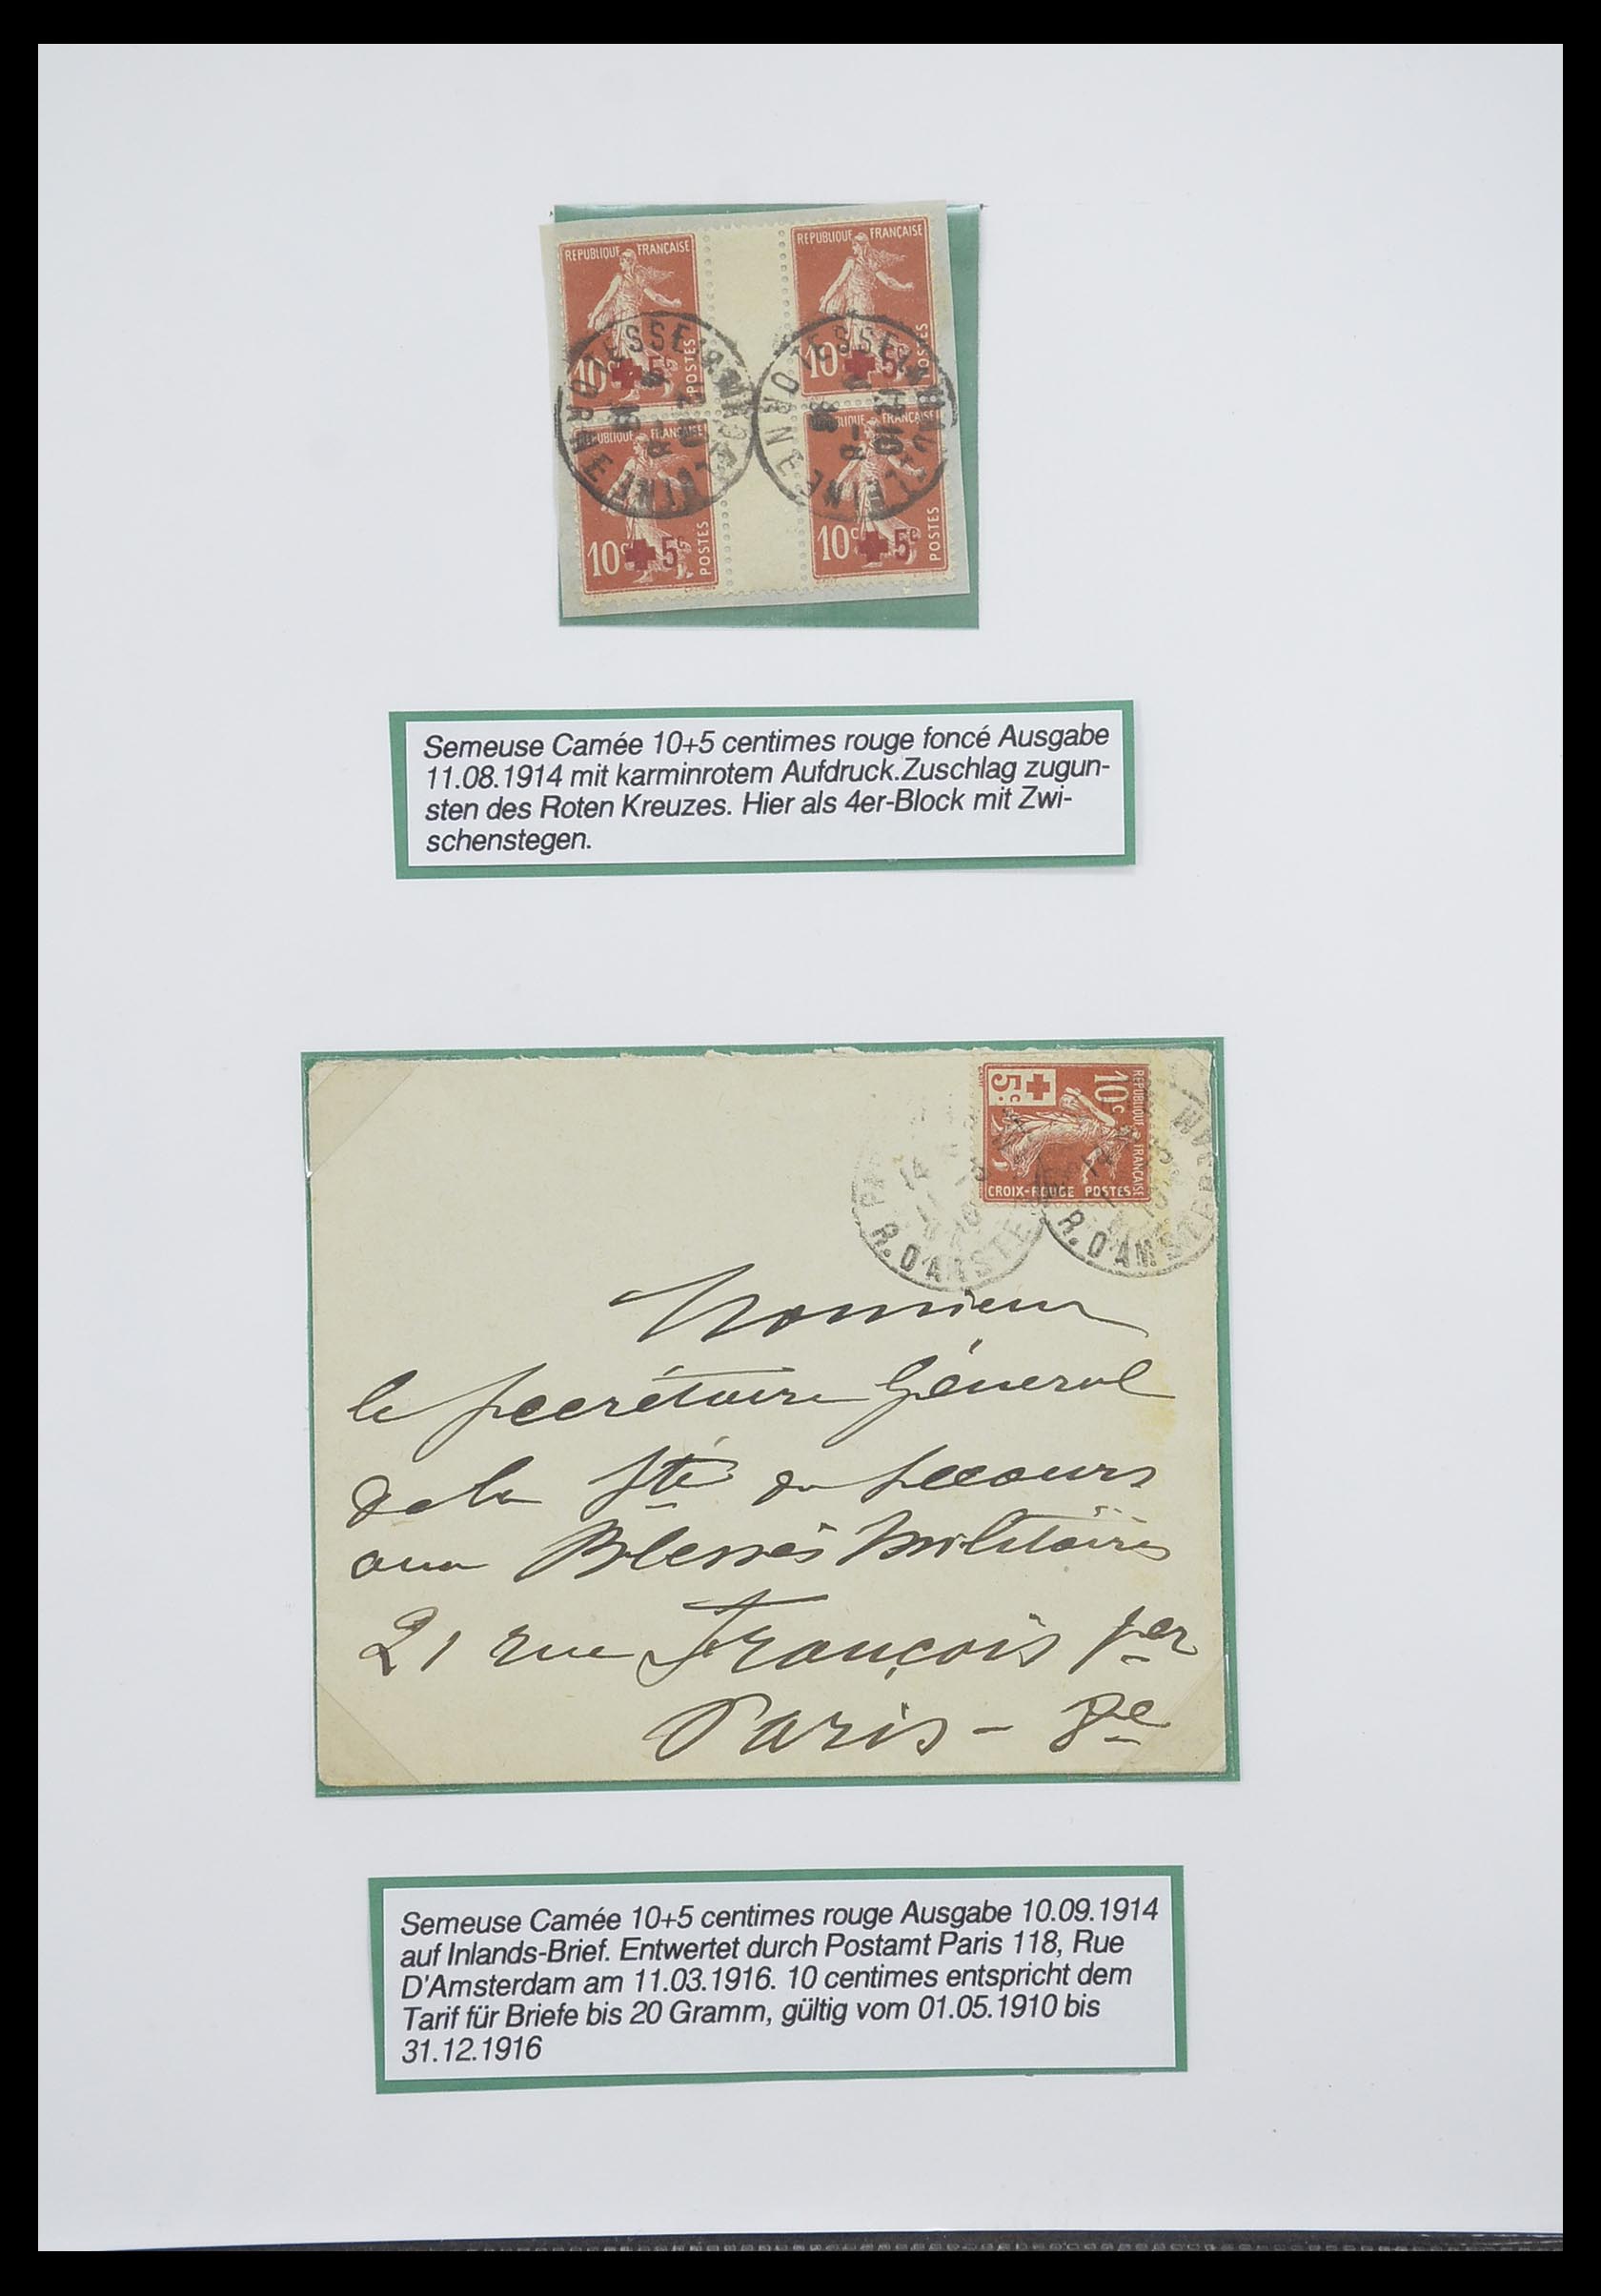 REPUBLIQUE FRANÇAISE
REPUBLIQUE FRANÇAISE
10c 5c POSTES
10c 5c POSTES
REPUBLIQUE FRANÇAISE
REPUBLIQUE FRANÇAISE
10c 5c POSTES
10c 5c POSTES
Semeuse Camée 10+5 centimes rouge foncé Ausgabe
11.08.1914 mit karminrotem Aufdruck.Zuschlag zugun-
sten des Roten Kreuzes. Hier als 4er-Block mit Zwi-
schenstegen.
REPUBLIQUE FRANÇAISE
10c
5c
CROIX-ROUGE POSTES
R. D'AMSTE
R. D'AMSTERDAM
Monsieur
le Secrétaire Général
de la Sté de Secours
aux Blessés Militaires
21 rue François 1er
Paris - 8e
Semeuse Camée 10+5 centimes rouge Ausgabe 10.09.1914
auf Inlands-Brief. Entwertet durch Postamt Paris 118, Rue
D'Amsterdam am 11.03.1916. 10 centimes entspricht dem
Tarif für Briefe bis 20 Gramm, gültig vom 01.05.1910 bis
31.12.1916